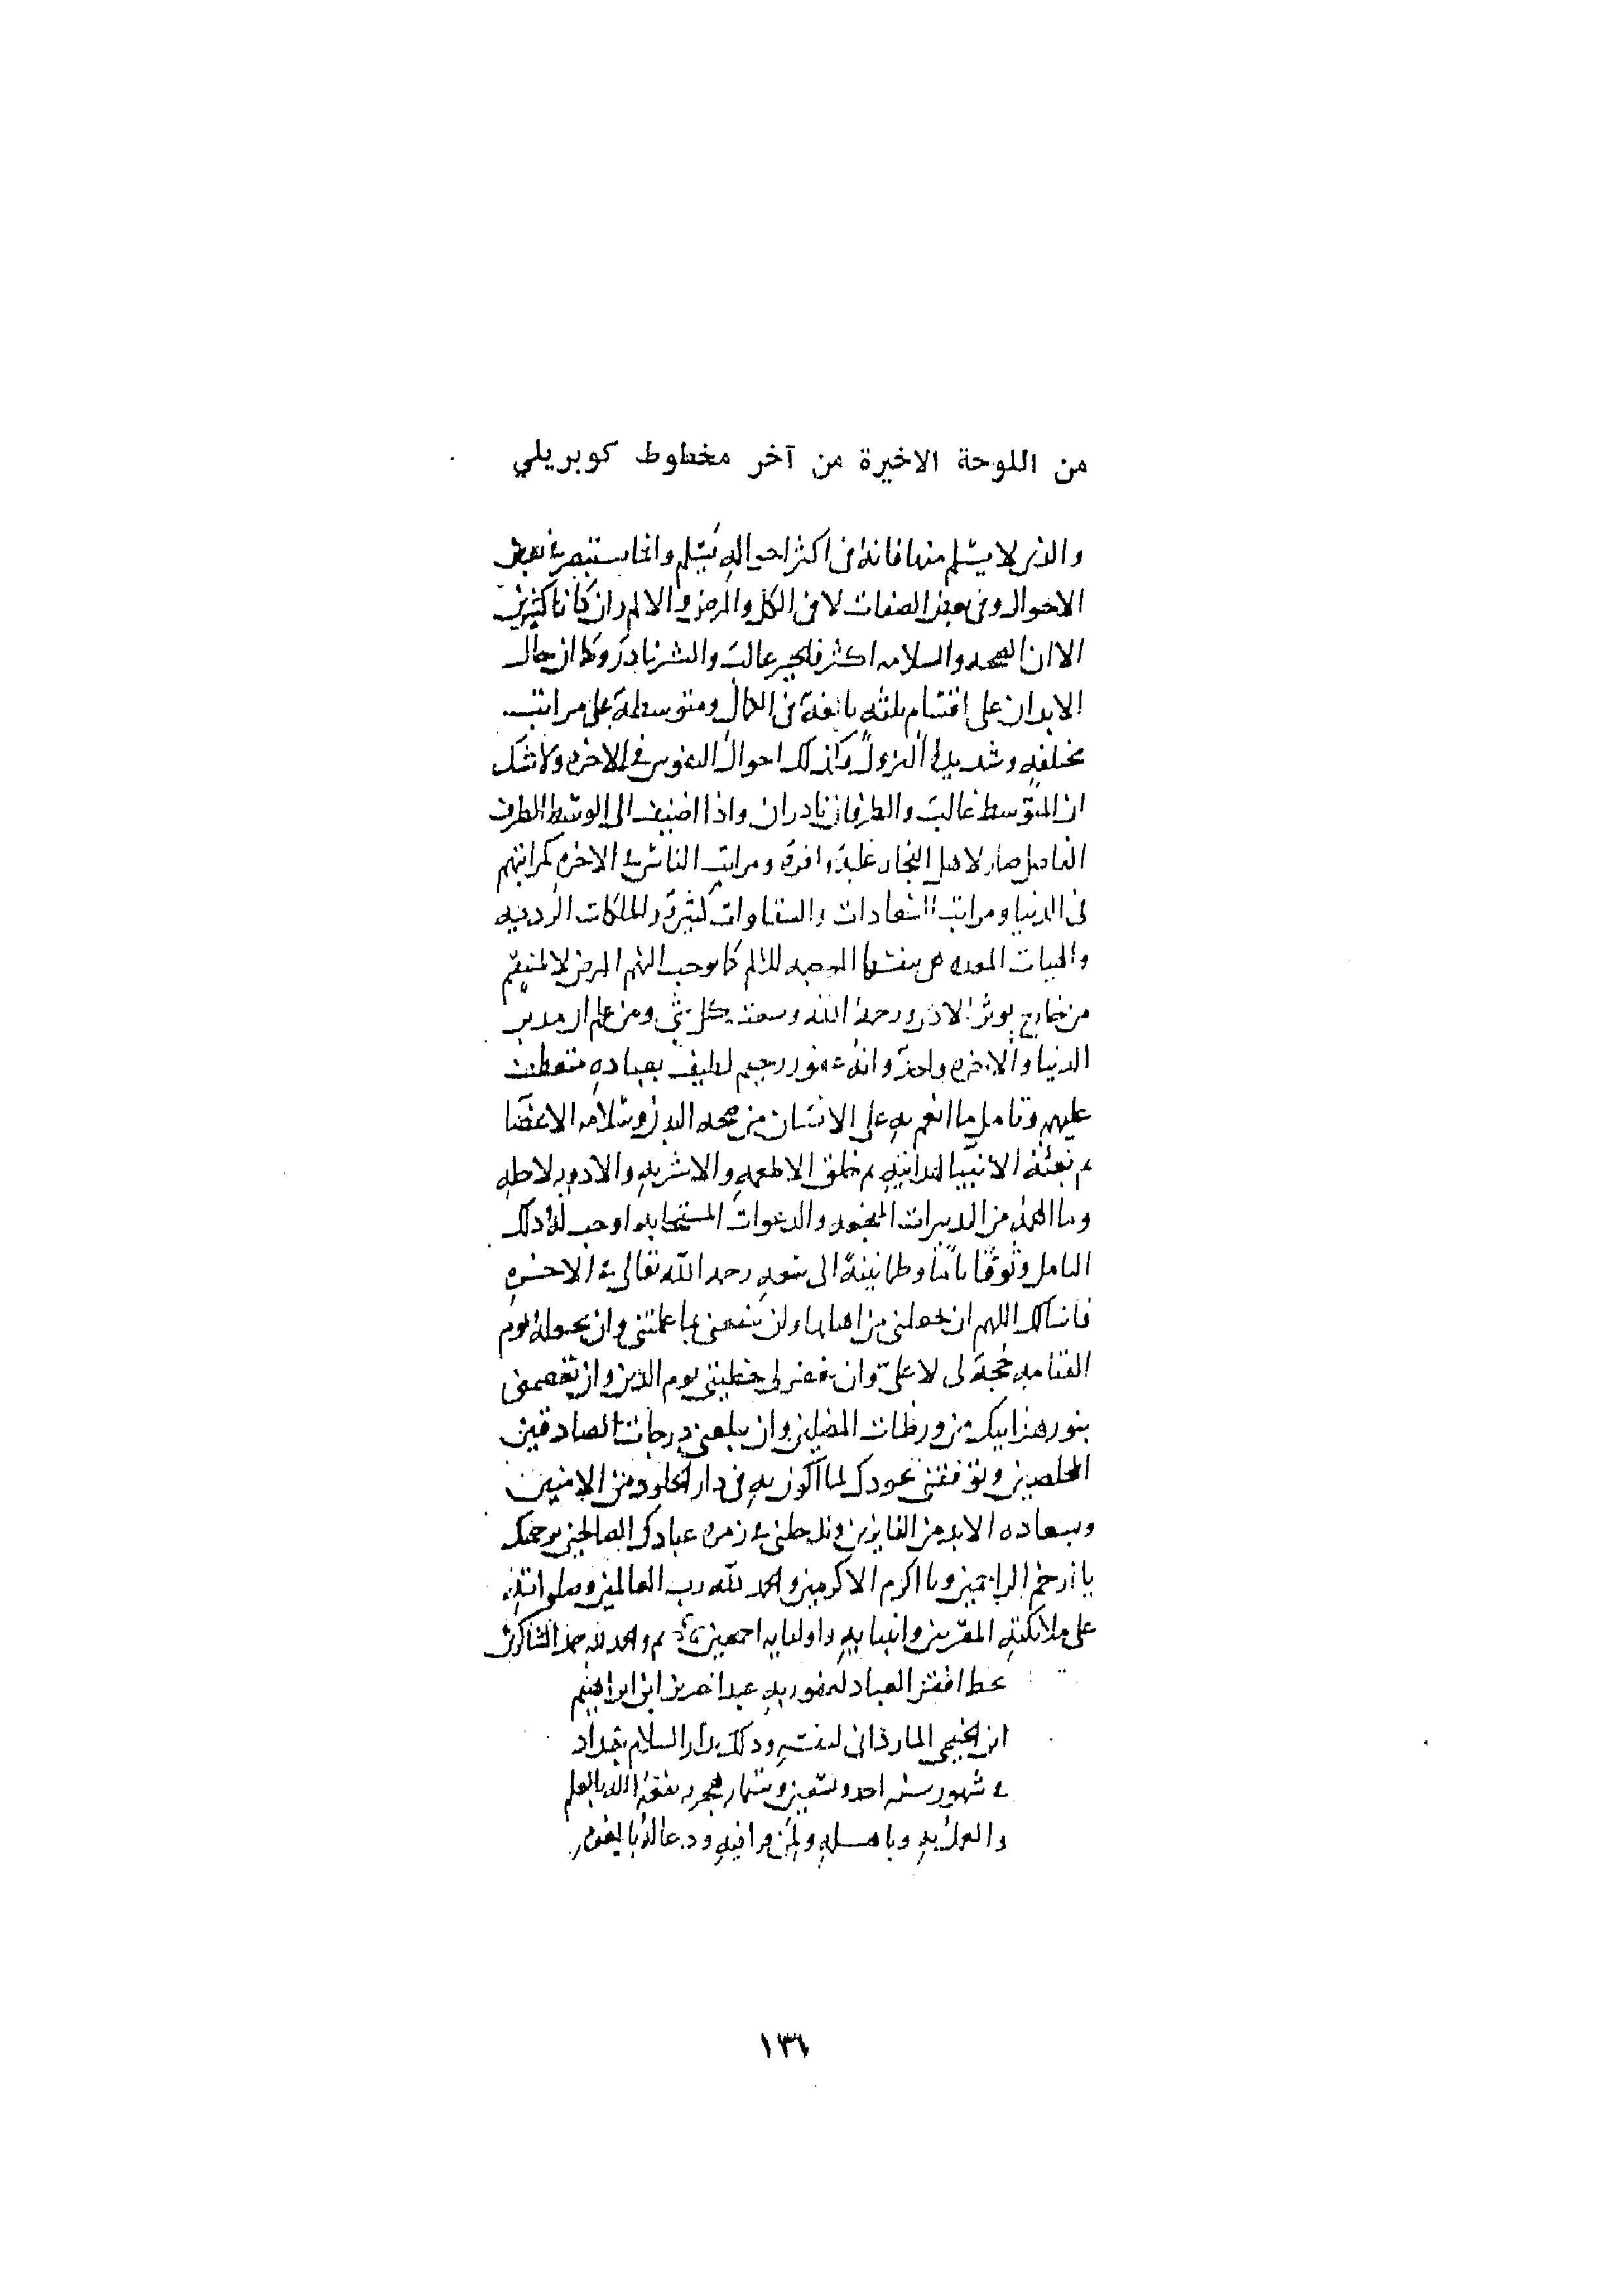 من اللوحة الاخيرة من آخر مخطوط كوبريلي
والذى لا يسلم منها فانه فى اكثر احواله يسلم وانما يستضر فى بعض
الاحوال وفى بعض الصفات لا فى الكل والمرض والالم وان كانا كثيرين
الا ان الصحه والسلامه اكثر فالخير غالب والشر نادر وكما ان حال
الابدان على اقسام ثلثه بالغة فى الكمال ومتوسطة على مراتب
مختلفه وشديدة النزول وكذلك احوال النفوس فى الاخره ولا شك
ان المتوسط غالب والطرفان نادران واذا اضيف الى الوسط الطرف
الفاضل صار لاهل النجاه غلبة وافرة ومراتب الناس فى الاخره كمراتبهم
فى الدنيا ومراتب السعادات والشقاوات كثيرة والملكات الرديه
والهيات هى بنفسها الموجبه للالم كما يوجب النهم المرض لا لمنتقم
من خارج يوثر الاذى ورحمة الله وسعت كل شى ومن علم ان مدبر
الدنيا والاخره واحد وانه غفور رحيم لطيف بعباده متعطف
عليهم وتامل ما انعم به على الانسان من صحه البدن وسلامه الاعضا
ثم بعثة الانبيا لهدايته ثم خلق الاطعمه والاشربه والادويه لاجله
وما الهمه من التدبيرات والدعوات المستجابه اوجب له ذلك
التامل وثوقا تاما وطمانينة الى سعه رحمه الله تعالى فى الاخره
فاسالك اللهم ان تجعلنى من اهلها وان تنفعنى بما علمتنى وان تجعله يوم
القيامه حجة لى لا على وان تغفر لى خطيئتى يوم الدين وان تعصمنى
بنور هدايتك من ورطات المضلين وان تبلغنى درجات الصادقين
المخلصين وتوفقنى بجودك لما اكون به فى دار الخلود من الامنين
وبسعاده الابد من الفايزين وتدخلنى فى زمره عبادك الصالحين برحمتك
يا ارحم الراحمين ويا اكرم الاكرمين والحمد لله رب العالمين وصلواته
على ملائكته المقربين وانبيايه واوليايه اجمعين والحمد لله حمد الشاكرين
بخط افقر العباد لعفو ربه ابن ابراهيم
ابن المارداني لنفسه وذلك بدار السلام بغداد
فى شهور سنه احد وتسعين نفعه الله بالعلم
والعمل به وباهله ولمن قرا فيه ودعا له
١٣٦